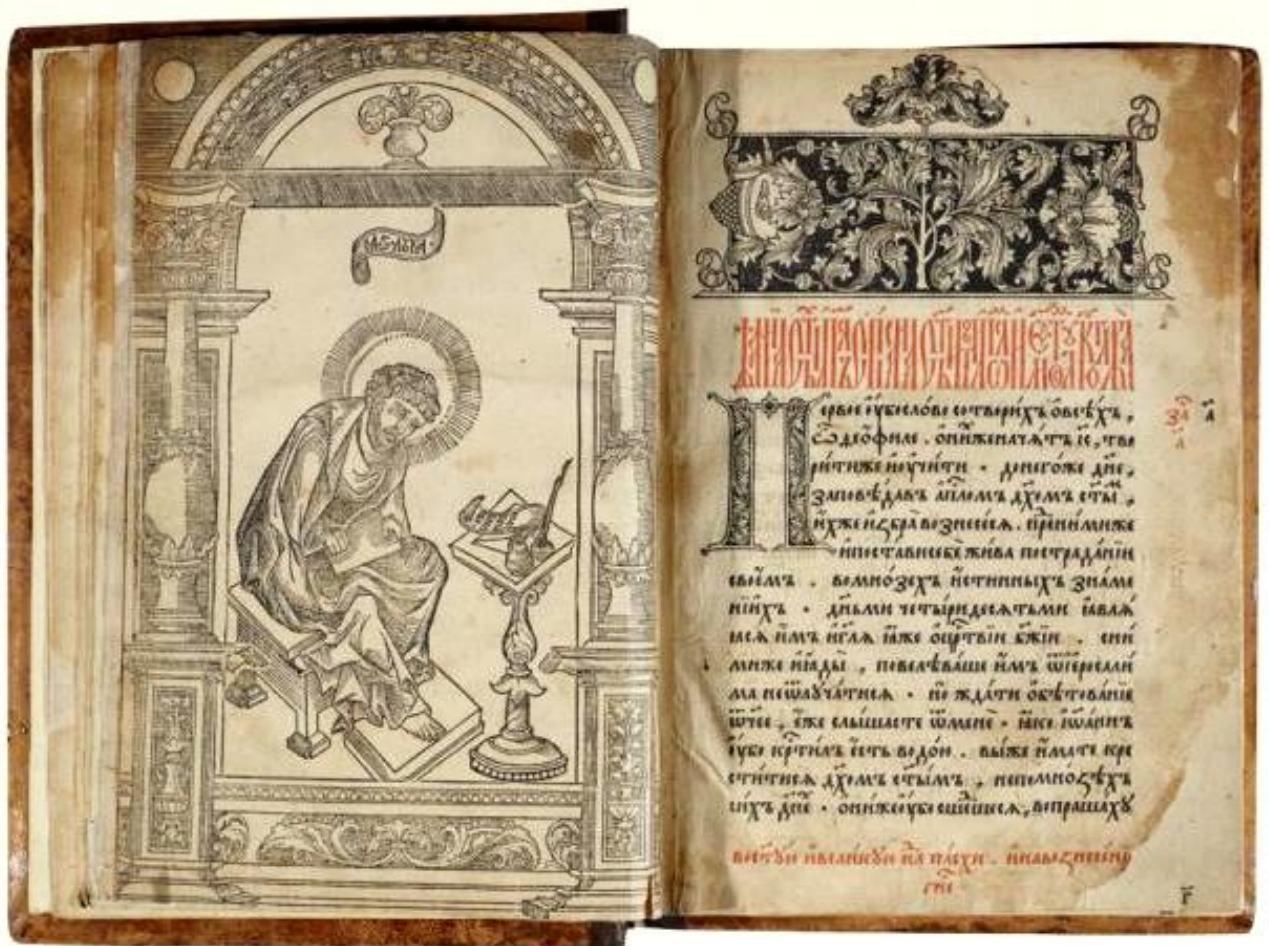 Первое ѹ҆бо сло́во сотвори́хъ ѡ҆всѣ́хъ ,
ѽ део́филе . ѡ҆ни́хже нача́тъ і҆с҃ , тво
ри́тиже и҆ ѹ҆чи́ти . донего́же дн҃е ,
заповѣ́дав а҆пⷭ҇ломъ дх҃омъ ст҃ы́м ,
и҆́хже и҆ꙁбра̀ вознесе́сѧ . пре́дними же
и҆ поста́ви себѐ жи́ва пострада́нїи
свое́мъ . во мно́зехъ и҆́стинныхъ зна́ме
нїихъ . дн҃ьми четы́ридесѧтьми ꙗ҆влѧ́ѧ
сѧ и҆́мъ и҆ гл҃ѧ ꙗ҆́же ѡ҆ црⷭ҇твїи бж҃їи . сни́
миже и҆ ꙗ҆ды̀ , повелѣва́ше и҆́мъ ѿ і҆ерⷭ҇сали
ма не ѿлѹча́тисѧ . но жда́ти ѡ҆бѣтова́нїе
ѿчее , е҆́же слы́шасте ѿ менѐ . ꙗ҆́ко і҆ѡа́ннъ
ѹ҆́бо крⷭ҇ти́лъ є҆́сть водо́ю . вы́же и҆́мате кре
сти́тисѧ дх҃омъ ст҃ы́мъ , не по мно́ꙁѣхъ
си́хъ дн҃е . ѡ҆ни́же ѹ҆́бо сше́дшесѧ , вопраша́хѹ
г҃